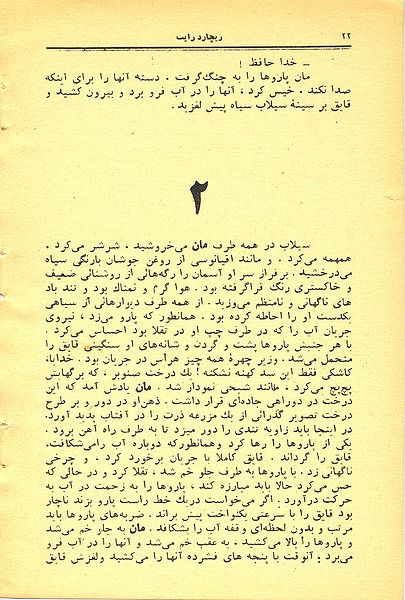 ۲۲
ریچارد رایت
ـ خدا حافظ !
مان پاروها را به چنگ گرفت . دسته آنها را برای اینکه
صدا نکند . خیس کرد ، آنها را در آب فرو برد و بیرون کشید و
قایق بر سینهٔ سیلاب سیاه پیش لغزید .
۲
سیلاب در همه طرف مان می‌خروشید . شرشر می‌کرد .
همهمه می‌کرد . و مانند اقیانوسی از روغن جوشان بارنگی سیاه
می‌درخشید . برفراز سر او آسمان را رگه‌هائی از روشنائی ضعیف
و خاکستری رنگ فراگرفته بود . هوا گرم و نمناك بود و تند باد
های ناگهانی و نامنظم می‌وزید . از همه طرف دیوارهائی از سیاهی
یکدست او را احاطه کرده بود . همانطور که پارو می‌زد ، نیروی
جریان آب را که در طرف چپ او در تقلا بود احساس می‌کرد .
با هر جنبش پاروها پشت و گردن و شانه‌های او سنگینی قایق را
متحمل می‌شد . وزیر چهرهٔ همه چیز هراس در جریان بود . خدایا،
کاشکی فقط این سد کهنه نشکنه ! یك درخت صنوبر ، که برگهایش
پچ‌پچ می‌کرد ، مانند شبحی نمودار شد . مان یادش آمد که این
درخت در دوراهی جاده‌ای قرار داشت . ذهن‌او در دور و بر طرح
درخت تصویر گذرائی از یك مزرعه ذرت را در آفتاب پدید آورد.
در اینجا باید زاویه تندی را دور میزد تا به طرف راه آهن برود .
یکی از پاروها را رها کرد وهمانطورکه دوباره آب رامی‌شکافت،
قایق را گرداند . قایق کاملا با جریان برخورد کرد . و چرخی
ناگهانی زد . با پاروها به طرف جلو خم شد ، تقلا کرد و در حالی که
حس می‌کرد حالا باید مبارزه کند ، پاروها را به زحمت در آب به
حرکت درآورد . اگر می‌خواست دریك خط راست پارو بزند ناچار
بود قایق را با سرعتی یکنواخت پیش براند . ضربه‌های پاروها باید
مرتب و بدون لحظه‌ای وقفه آب را بشکافد . مان به جلو خم می‌شد
و پاروها را بالا می‌کشید . به عقب خم می‌شد و آنها را در آب فرو
می‌برد ؛ آنوقت با پنجه های فشرده آنها را می‌کشید ولغزش قایق